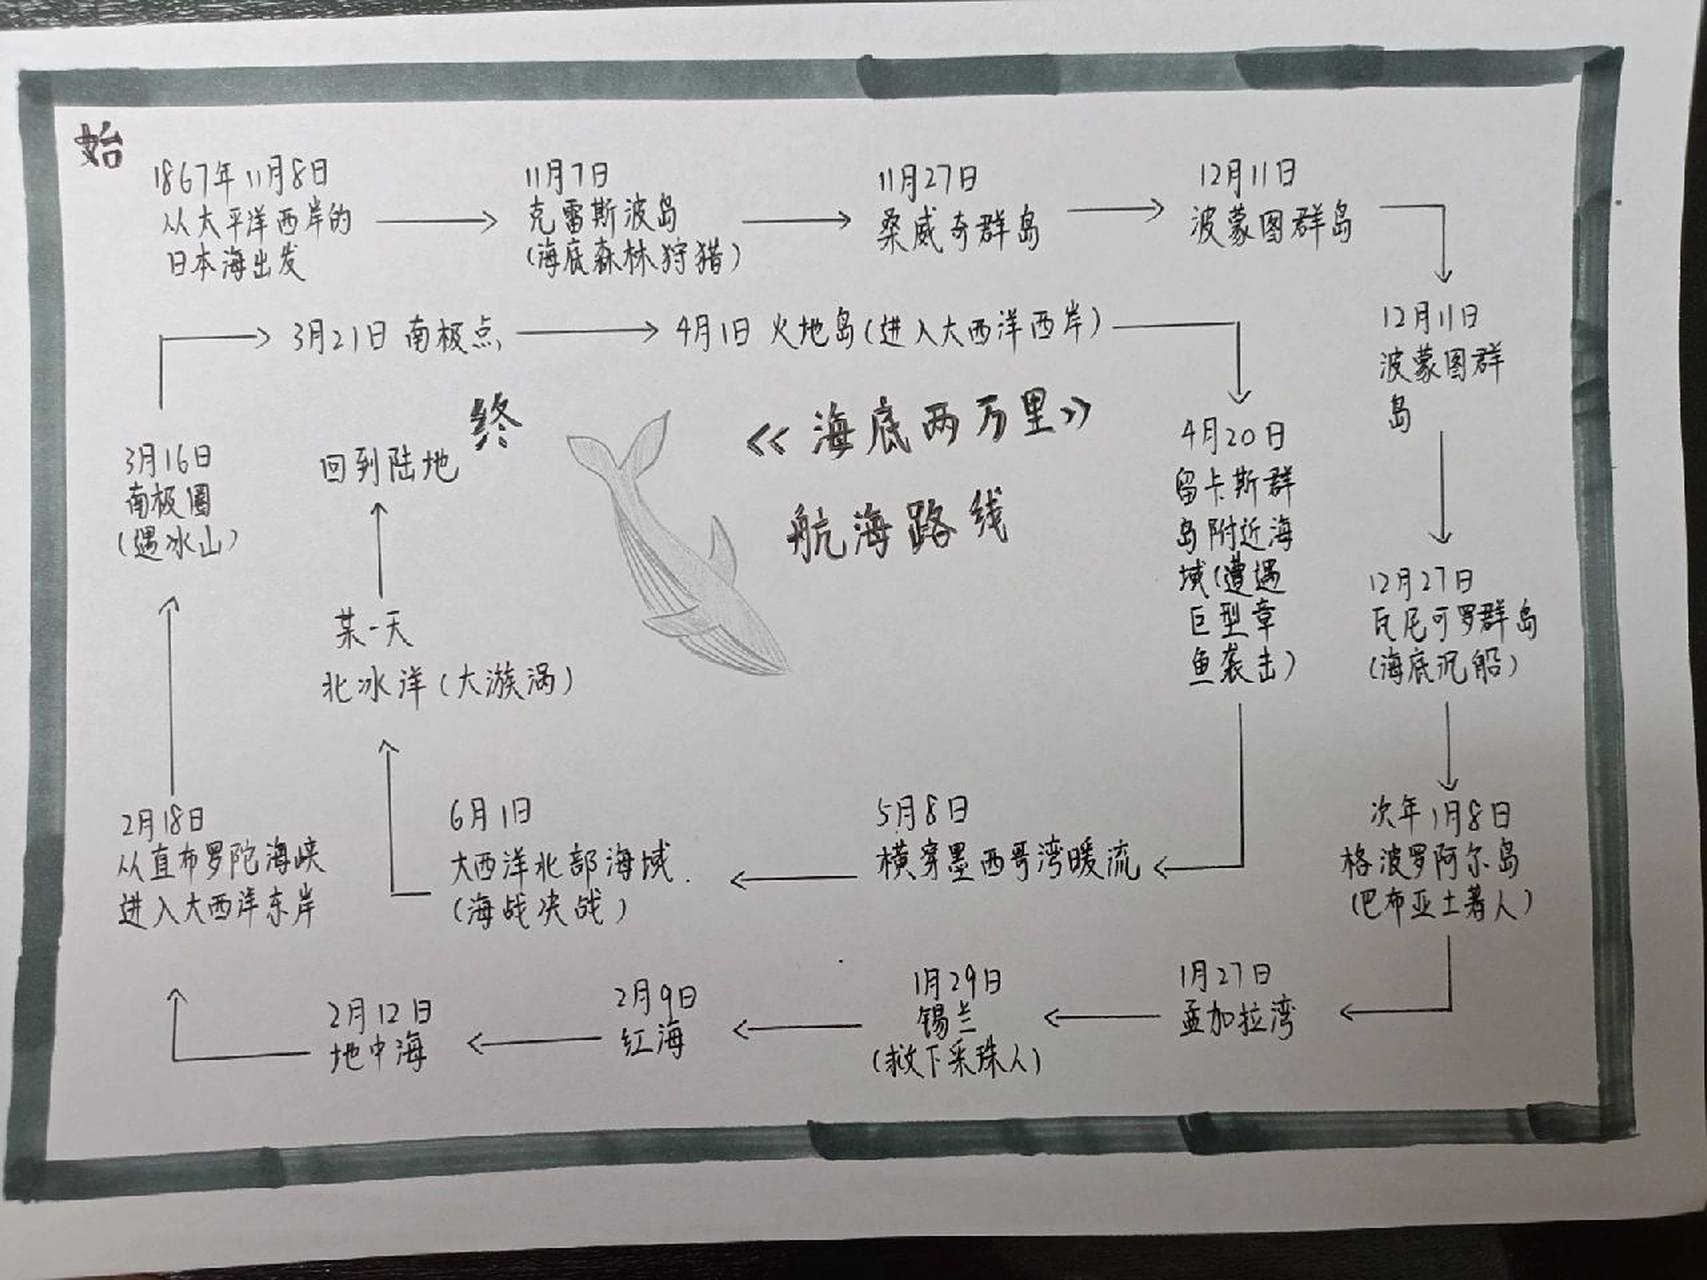 始
1867年11月8日
从太平洋西岸的
日本海出发
11月7日
克雷斯波岛
(海底森林狩猎)
11月27日
桑威奇群岛
12月11日
波蒙图群岛
12月11日
波蒙图群
岛
12月27日
瓦尼可罗群岛
(海底沉船)
次年1月8日
格波罗阿尔岛
(巴布亚土著人)
1月27日
孟加拉湾
1月29日
锡兰
(救下采珠人)
2月9日
红海
2月12日
地中海
2月18日
从直布罗陀海峡
进入大西洋东岸
3月16日
南极圈
(遇冰山)
3月21日 南极点
4月1日 火地岛(进入大西洋西岸)
4月20日
留卡斯群
岛附近海
域(遭遇
巨型章
鱼袭击)
5月8日
横穿墨西哥湾暖流
6月1日
大西洋北部海域.
(海战决战)
某一天
北冰洋(大漩涡)
回到陆地
终
《海底两万里》
航海路线